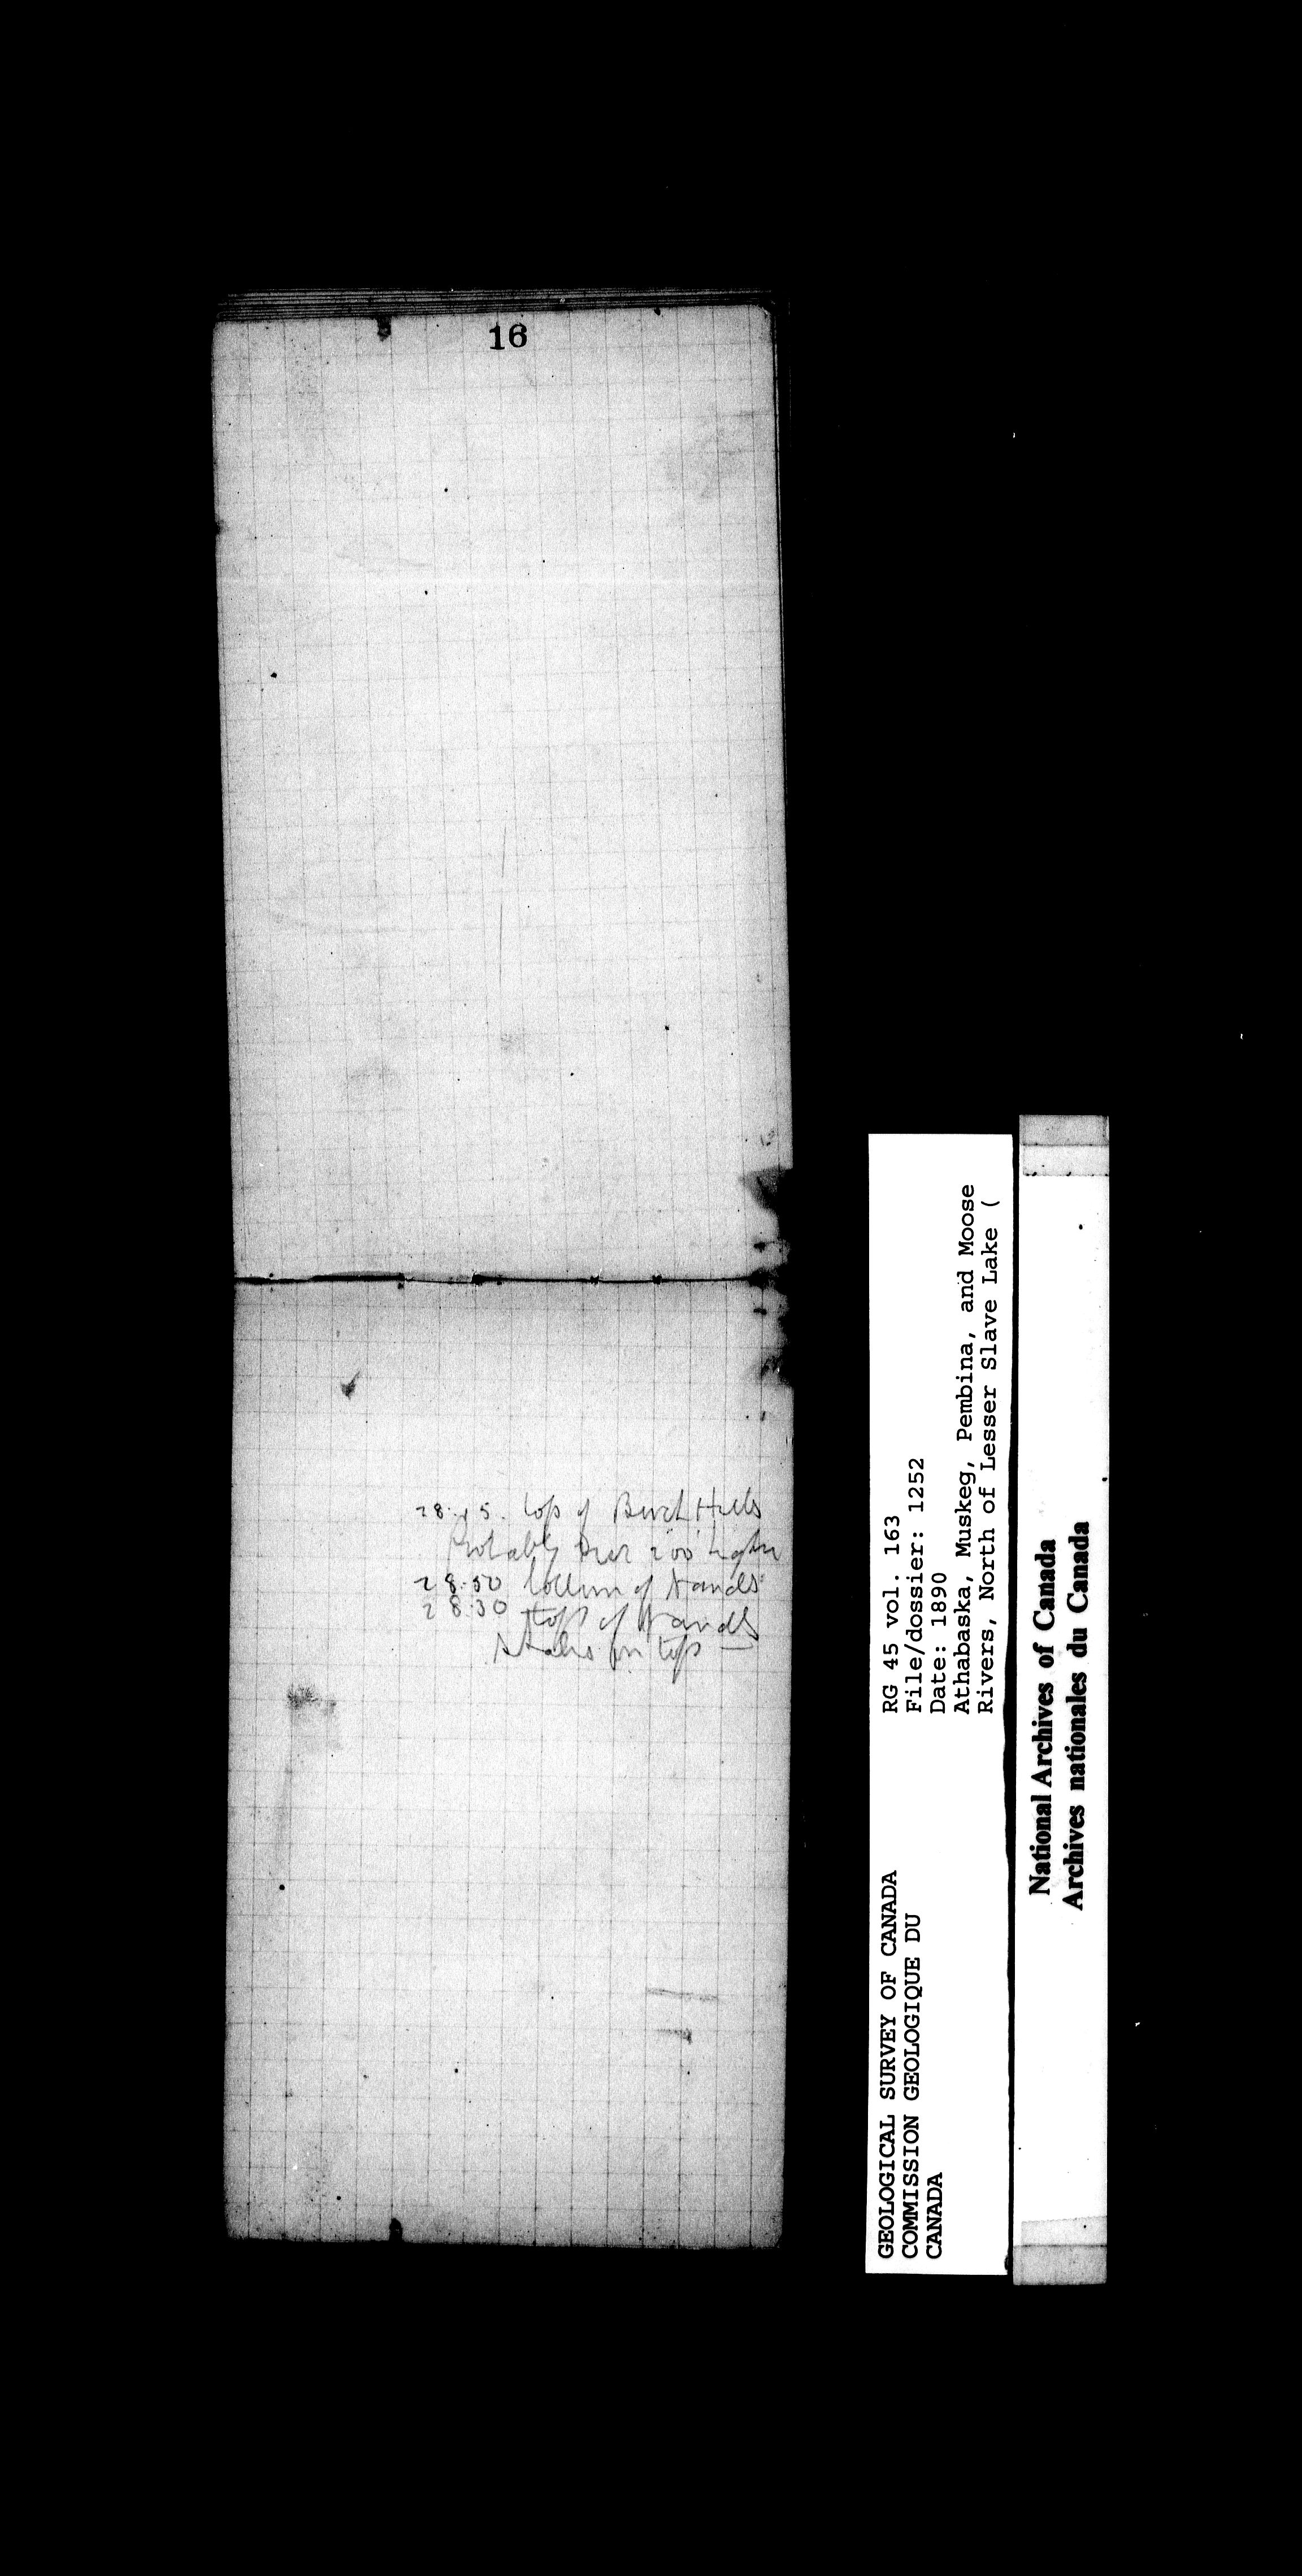 16
28.15. top of Birch Hills
Probably over 200' higher
28.50 bottom of sands
28.30 top of sands
shales on top
GEOLOGICAL SURVEY OF CANADA
COMMISSION GEOLOGIQUE DU
CANADA
RG 45 vol. 163
File/dossier: 1252
Date: 1890
Athabaska, Muskeg, Pembina, and Moose
Rivers, North of Lesser Slave Lake (
National Archives of Canada
Archives nationales du Canada